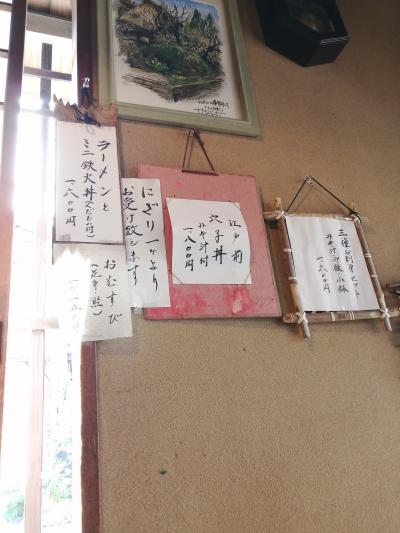 三種お刺身セット
みそ汁御飯小鉢
一、六〇〇円
江戸前
穴子丼
みそ汁付
一、八〇〇円
にぎり一ケより
お受け致します
ラーメンと
ミニ鉄火丼(サラダ付)
一、六〇〇円
おむすび